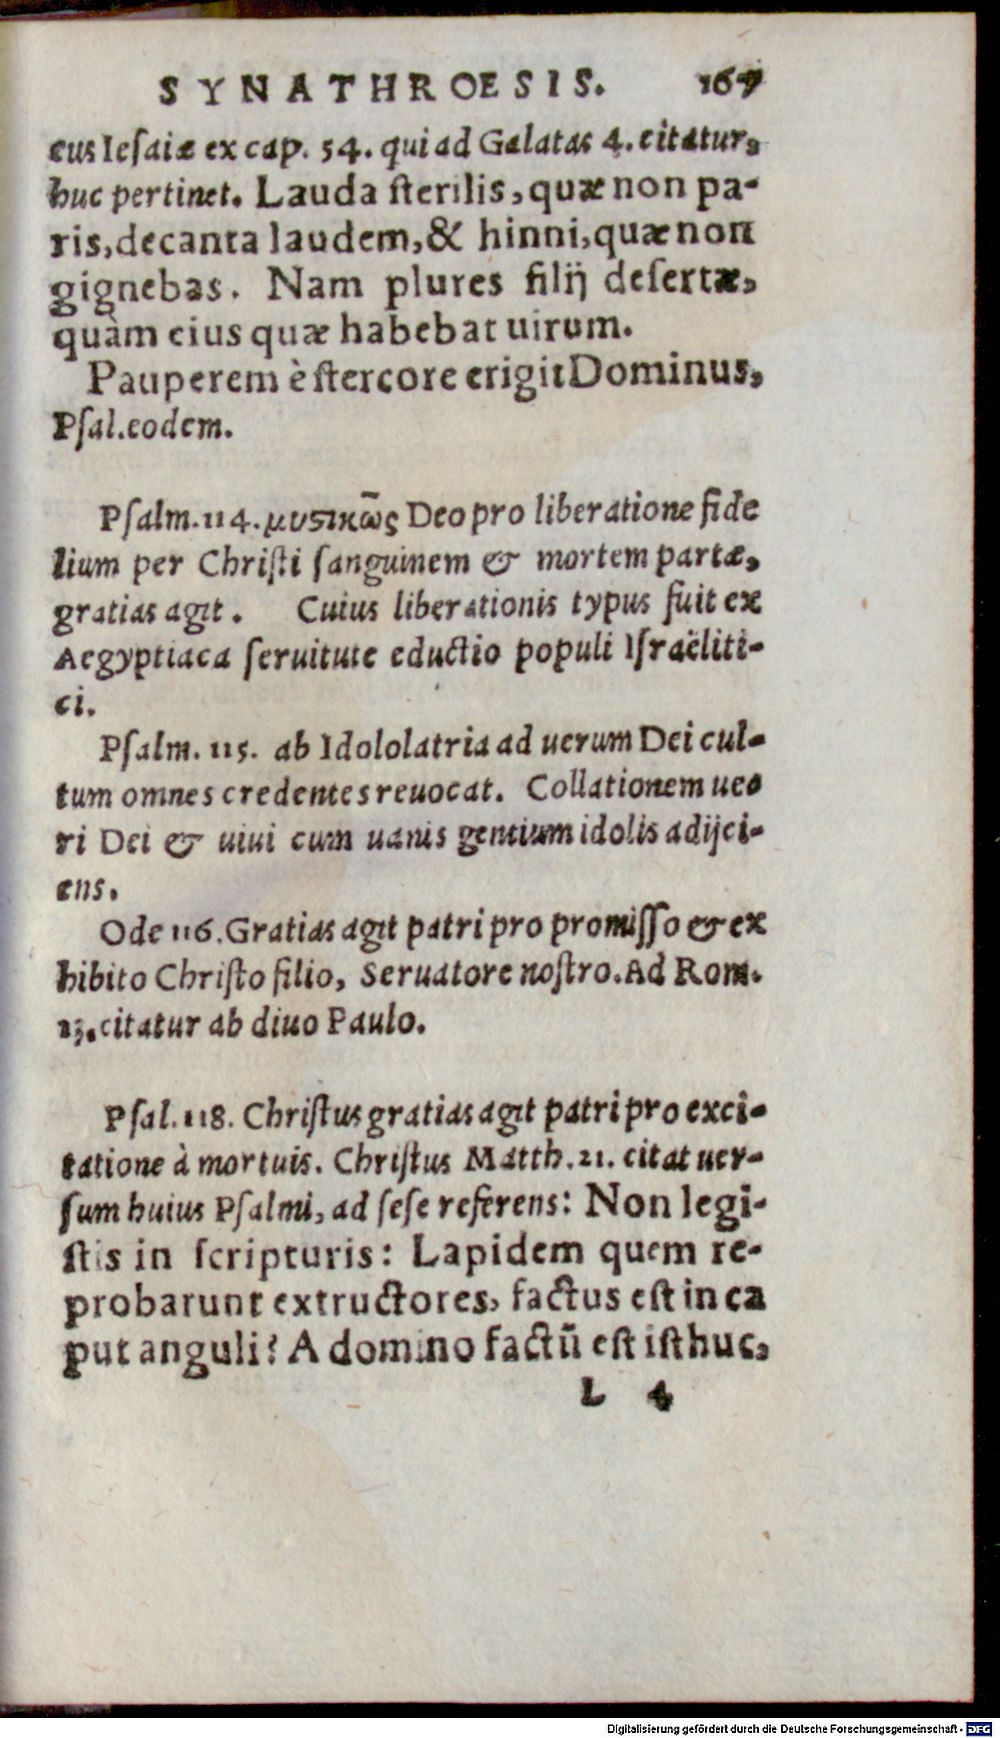 SYNATHROESIS. 167
cus Iesaiæ ex cap. 54. qui ad Galatas 4. citatur,
huc pertinet. Lauda sterilis, quæ non pa-
ris, decanta laudem, & hinni, quæ non
gignebas. Nam plures filij desertæ,
quàm eius quæ habebat uirum.
Pauperem è stercore erigit Dominus,
Psal. eodem.
Psalm. 114. μυστικῶς Deo pro liberatione fide
lium per Christi sanguinem & mortem partæ,
gratias agit. Cuius liberationis typus fuit ex
Aegyptiaca seruitute eductio populi Israëliti-
ci.
Psalm. 115. ab Idololatria ad uerum Dei cul-
tum omnes credentes reuocat. Collationem ueo
ri Dei & uiui cum uanis gentium idolis adijci-
ens.
Ode 116. Gratias agit patri pro promisso & ex
hibito Christo filio, Seruatore nostro. Ad Rom.
15. citatur ab diuo Paulo.
Psal. 118. Christus gratias agit patri pro exci-
tatione à mortuis. Christus Matth. 21. citat uer-
sum huius Psalmi, ad sese referens: Non legi-
stis in scripturis: Lapidem quem re-
probarunt extructores, factus est in ca
put anguli? A domino factũ est isthuc,
L 4
Digitalisierung gefördert durch die Deutsche Forschungsgemeinschaft - DFG